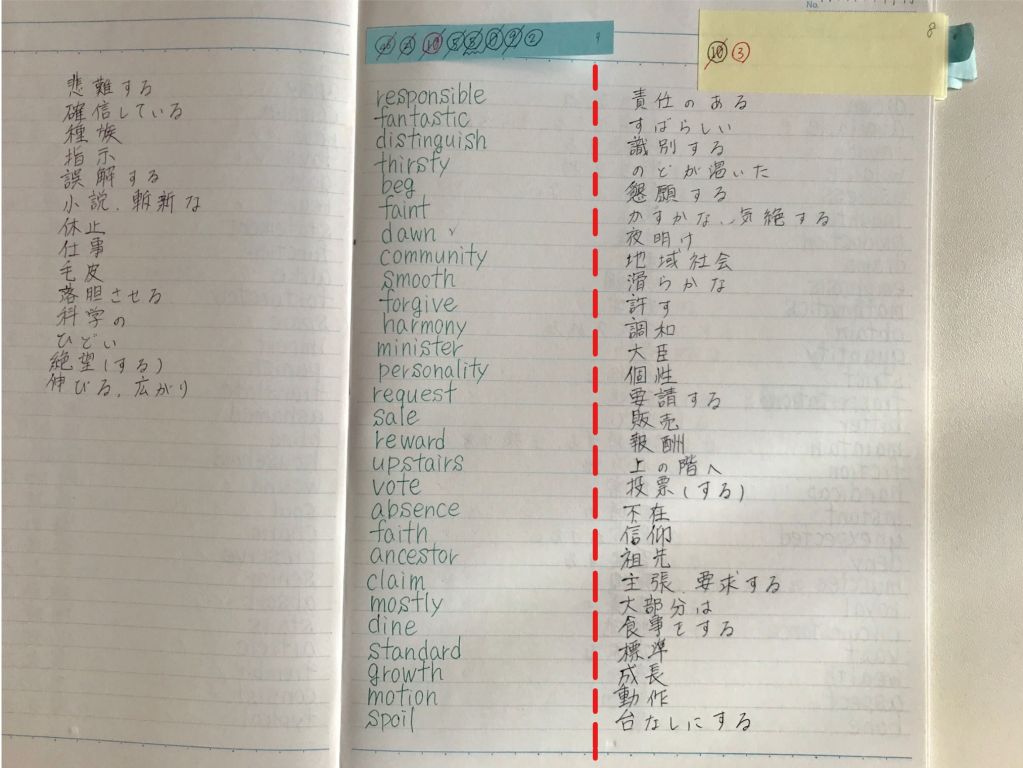 悲難する
確信している
種族
指示
誤解する
小説、斬新な
休止
仕事
毛皮
落胆させる
科学の
ひどい
絶望(する)
伸びる、広がり
No.
8
10 3
responsible 責任のある
fantastic すばらしい
distinguish 識別する
thirsty のどが渇いた
beg 懇願する
faint かすかな、気絶する
dawn 夜明け
community 地域社会
smooth 滑らかな
forgive 許す
harmony 調和
minister 大臣
personality 個性
request 要請する
sale 販売
reward 報酬
upstairs 上の階へ
vote 投票(する)
absence 不在
faith 信仰
ancestor 祖先
claim 主張、要求する
mostly 大部分は
dine 食事をする
standard 標準
growth 成長
motion 動作
spoil 台なしにする